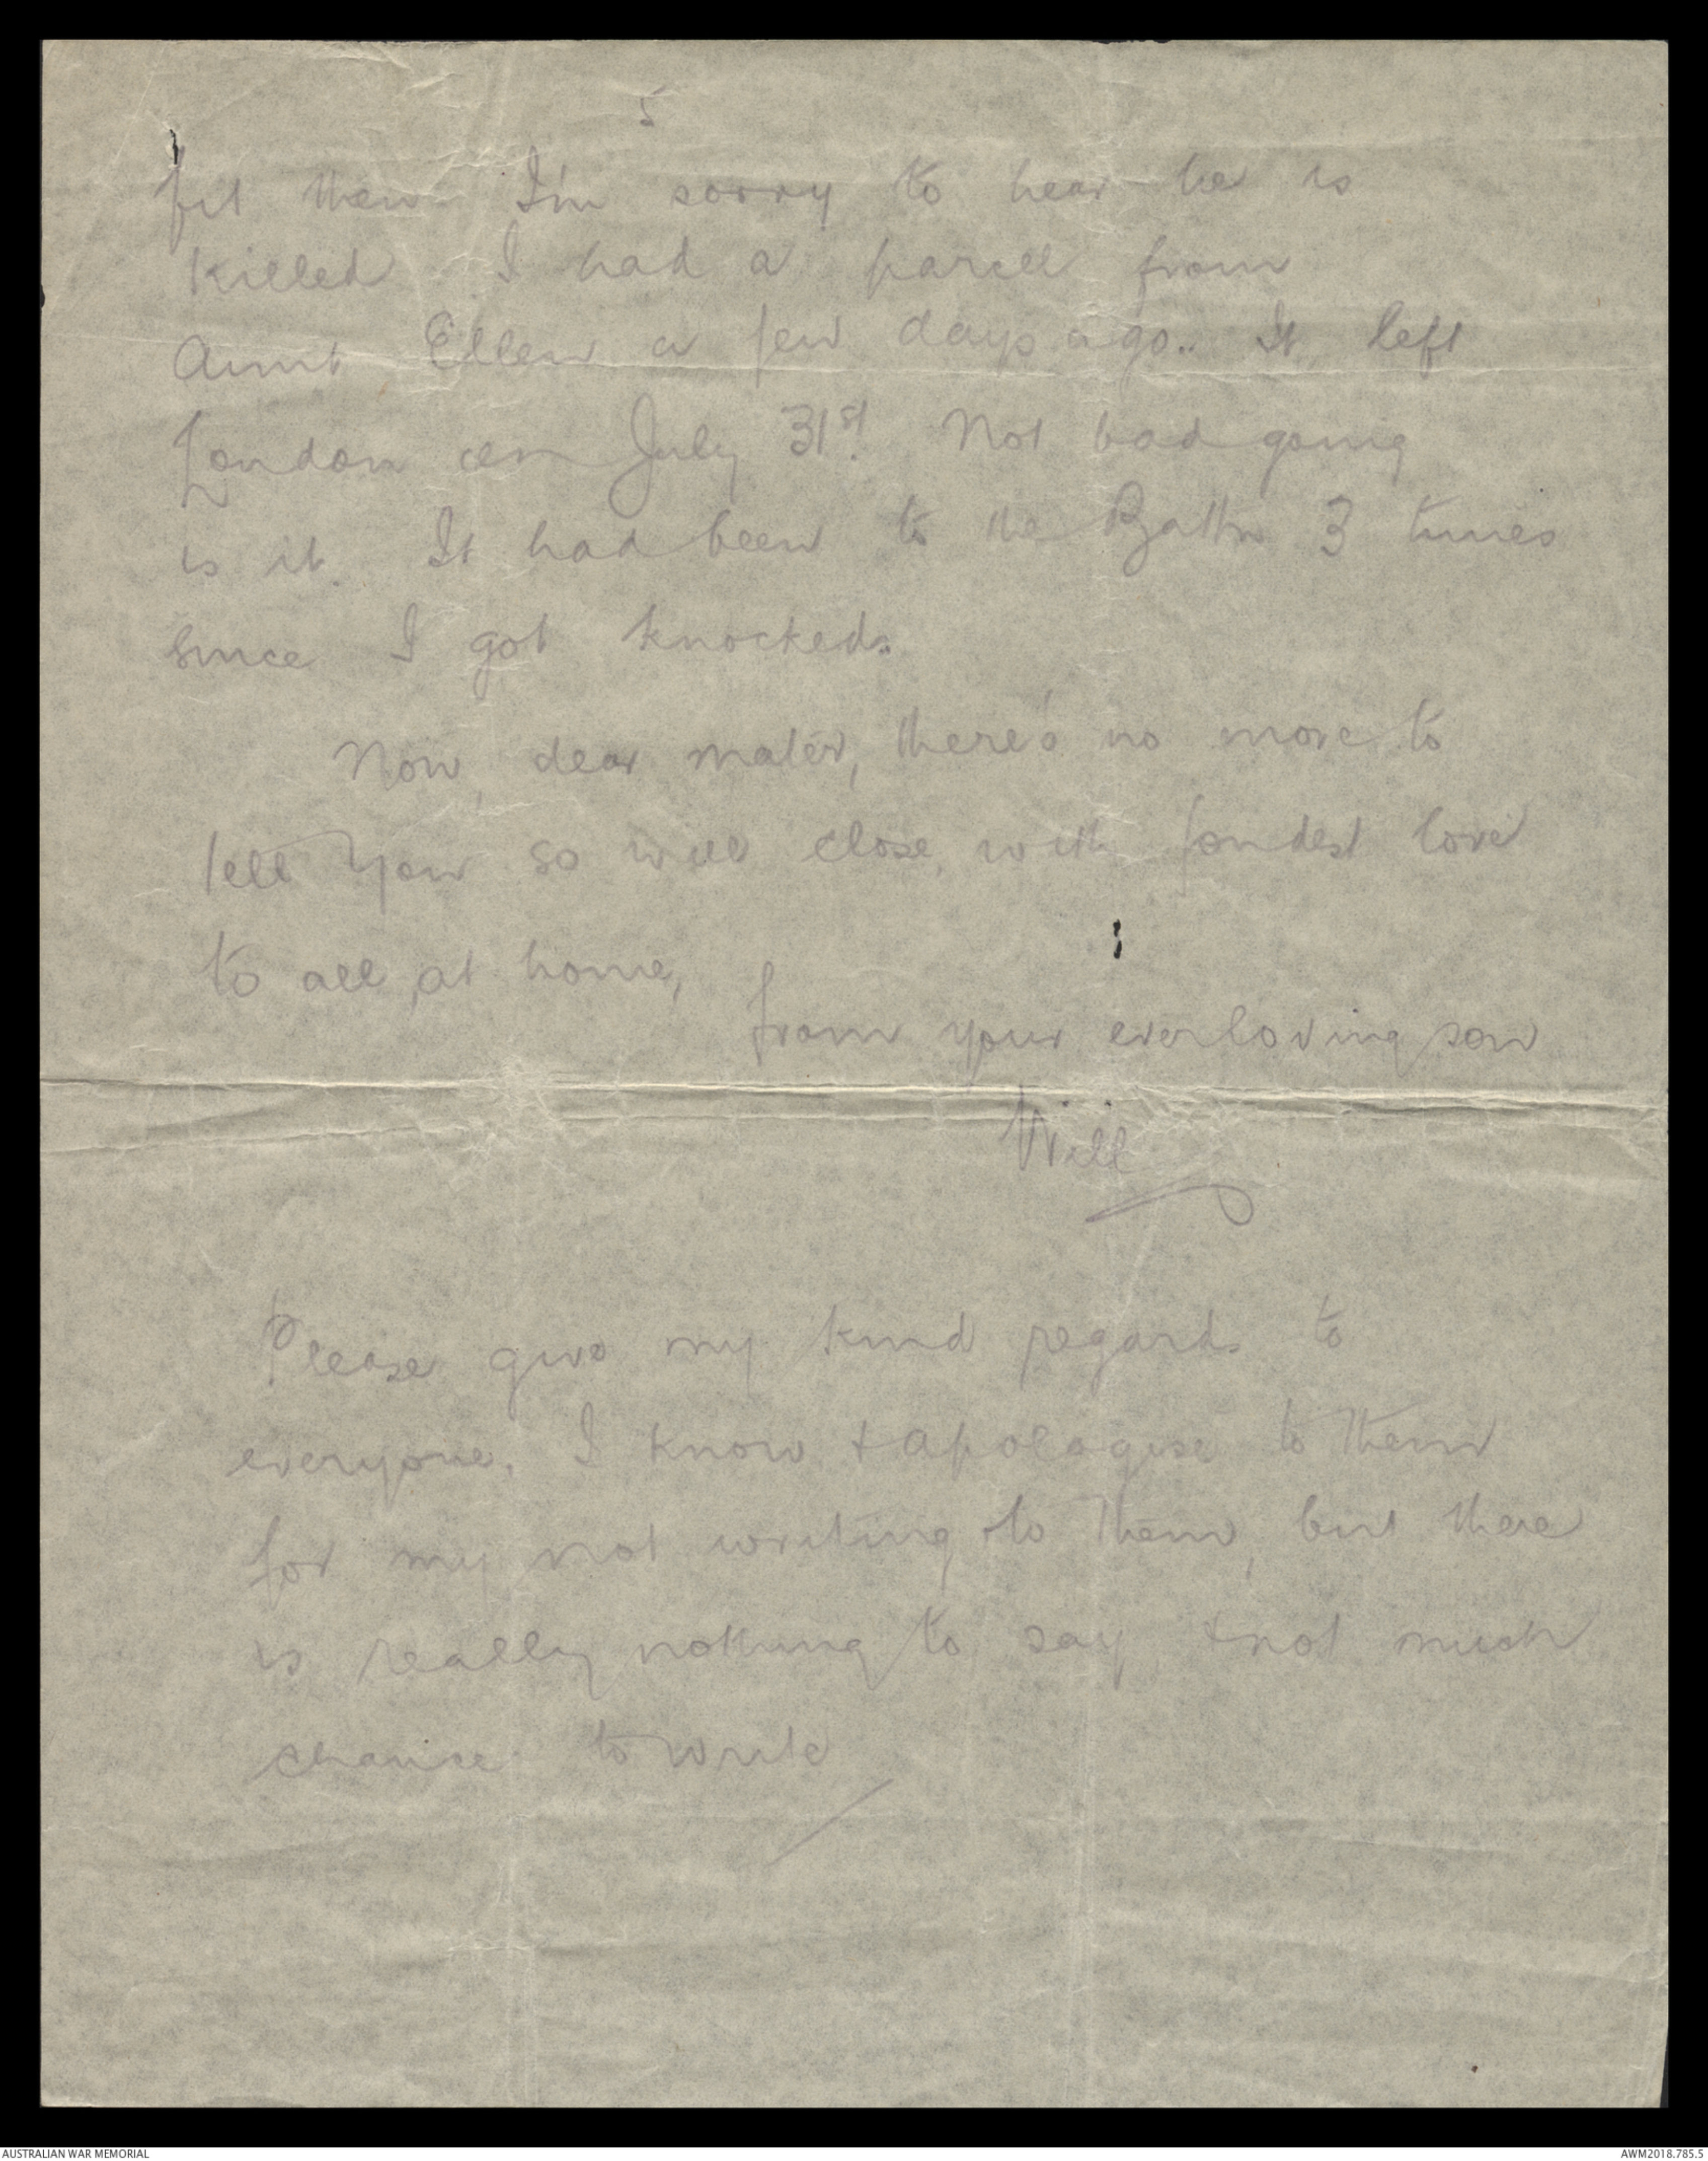 5
fit then I'm sorry to hear he is
killed I had a parcell from
Aunt Ellen a few days ago.. It left
London on July 31st. Not bad going
is it. It had been to the Battn 3 times
since I got knocked.
Now dear mater, there's no more to
tell you so will close, with fondest love
to all at home,
from your everloving son
Will
Please give my kind regards to
everyone, I know & apologise to them
for my not writing to them, but there
is really nothing to say, & not much
chance to write
AUSTRALIAN WAR MEMORIAL
AWM2018.785.5